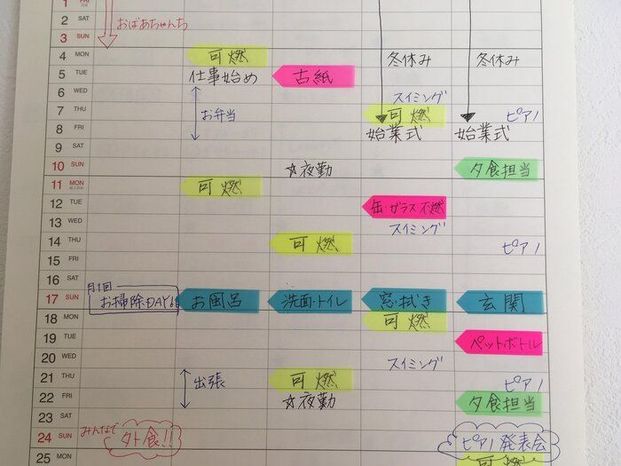 1 FRI
2 SAT おばあちゃんち
3 SUN
4 MON 可燃 冬休み 冬休み
5 TUE 仕事始め 古紙
6 WED スイミング
お弁当
7 THU 可燃 ピアノ
8 FRI 始業式 始業式
9 SAT
10 SUN ☆夜勤 夕食担当
11 MON 可燃
12 TUE 缶・ガラス 不燃
13 WED スイミング
14 THU 可燃 ピアノ
15 FRI
16 SAT
月1回
17 SUN お掃除DAY お風呂 洗面・トイレ 窓・拭き 玄関
18 MON 可燃
19 TUE ペットボトル
20 WED スイミング
21 THU 出張 可燃 ピアノ
22 FRI ☆夜勤 夕食担当
23 SAT
みんなで
24 SUN 外食!! ピアノ発表会
25 MON 可燃